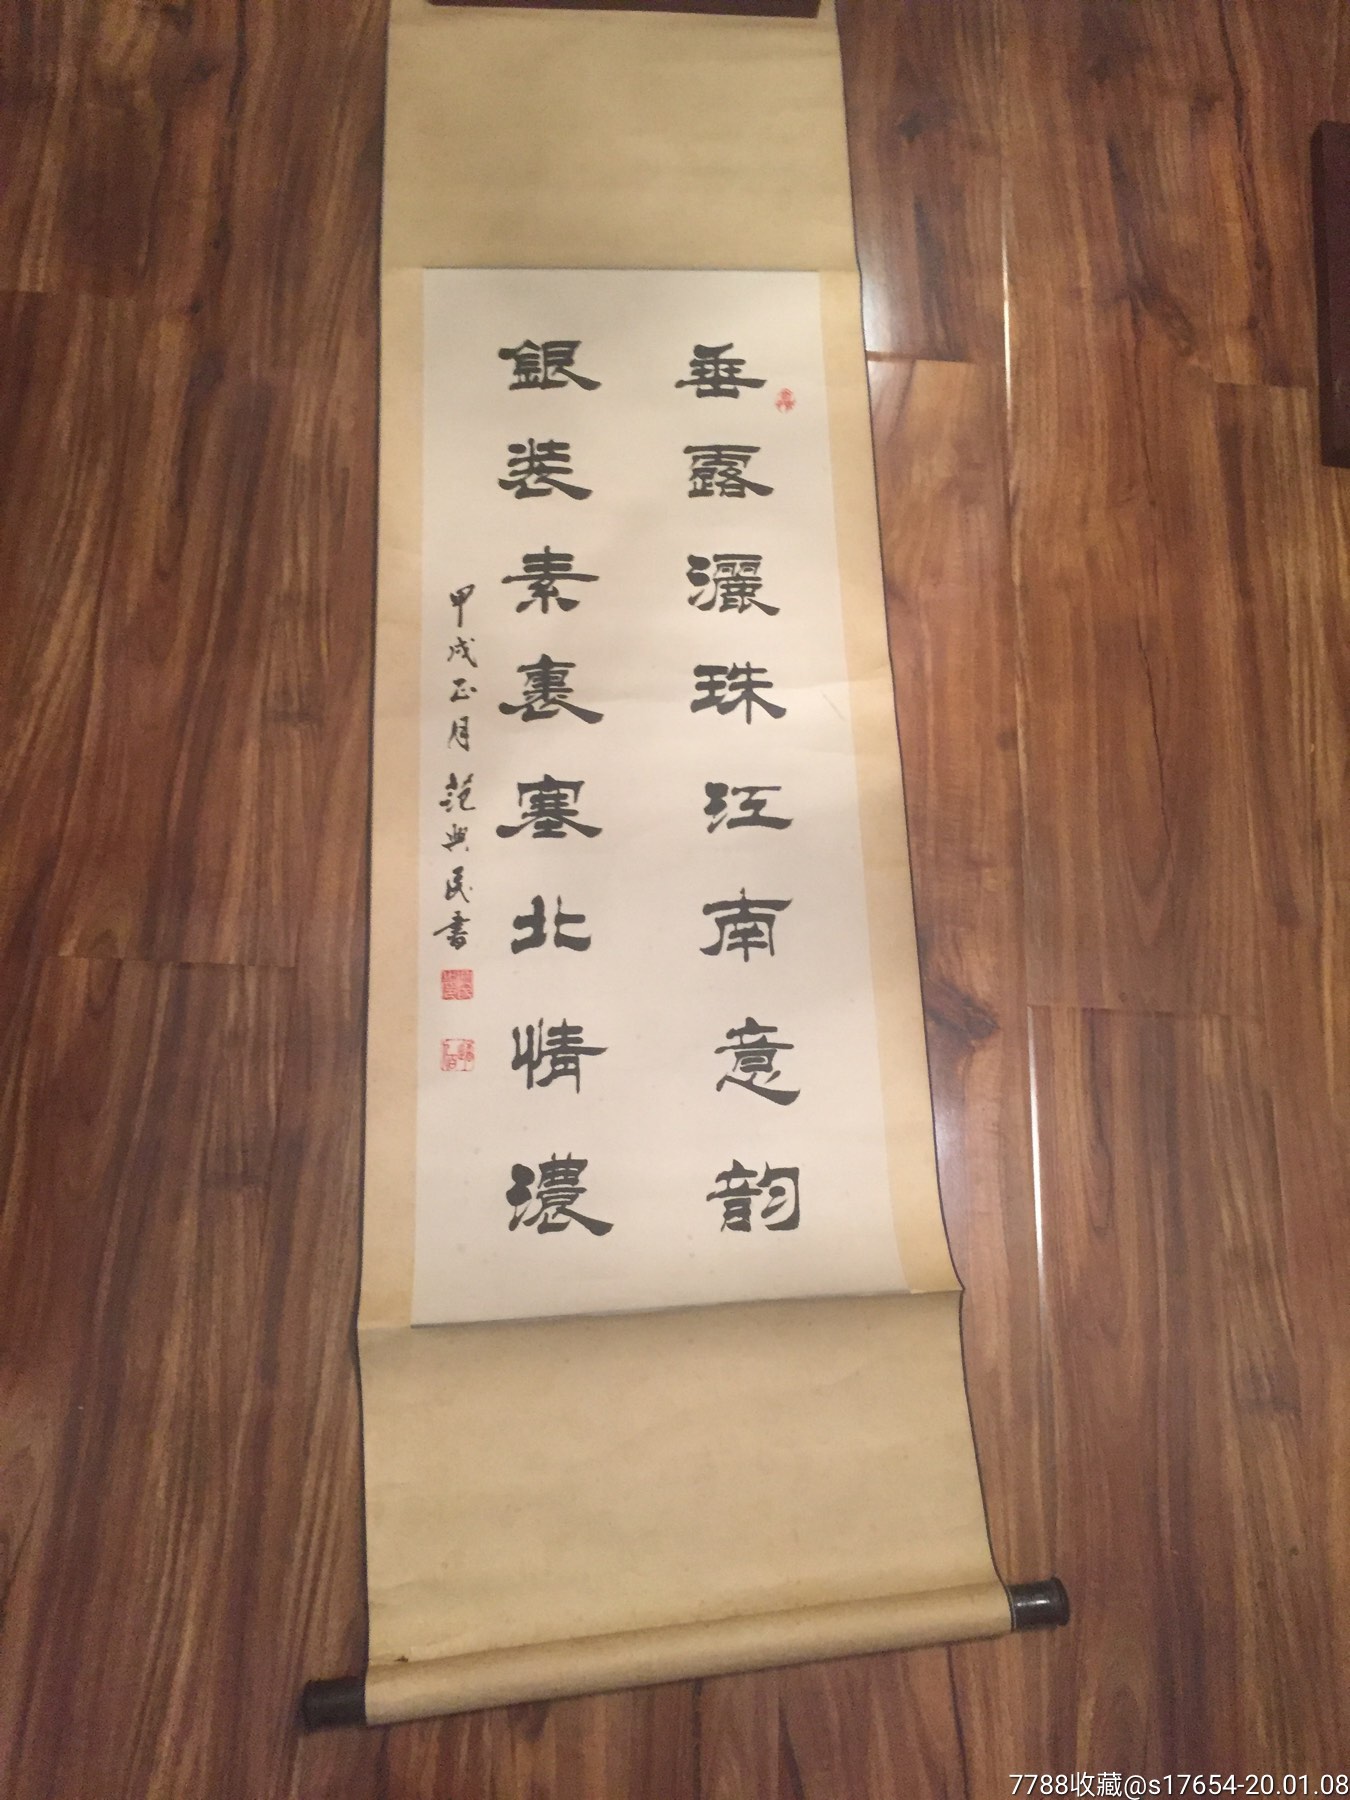 垂露灑珠江南意韵
銀装素裹塞北情濃
甲戌正月范興民書
7788收藏@s17654-20.01.08